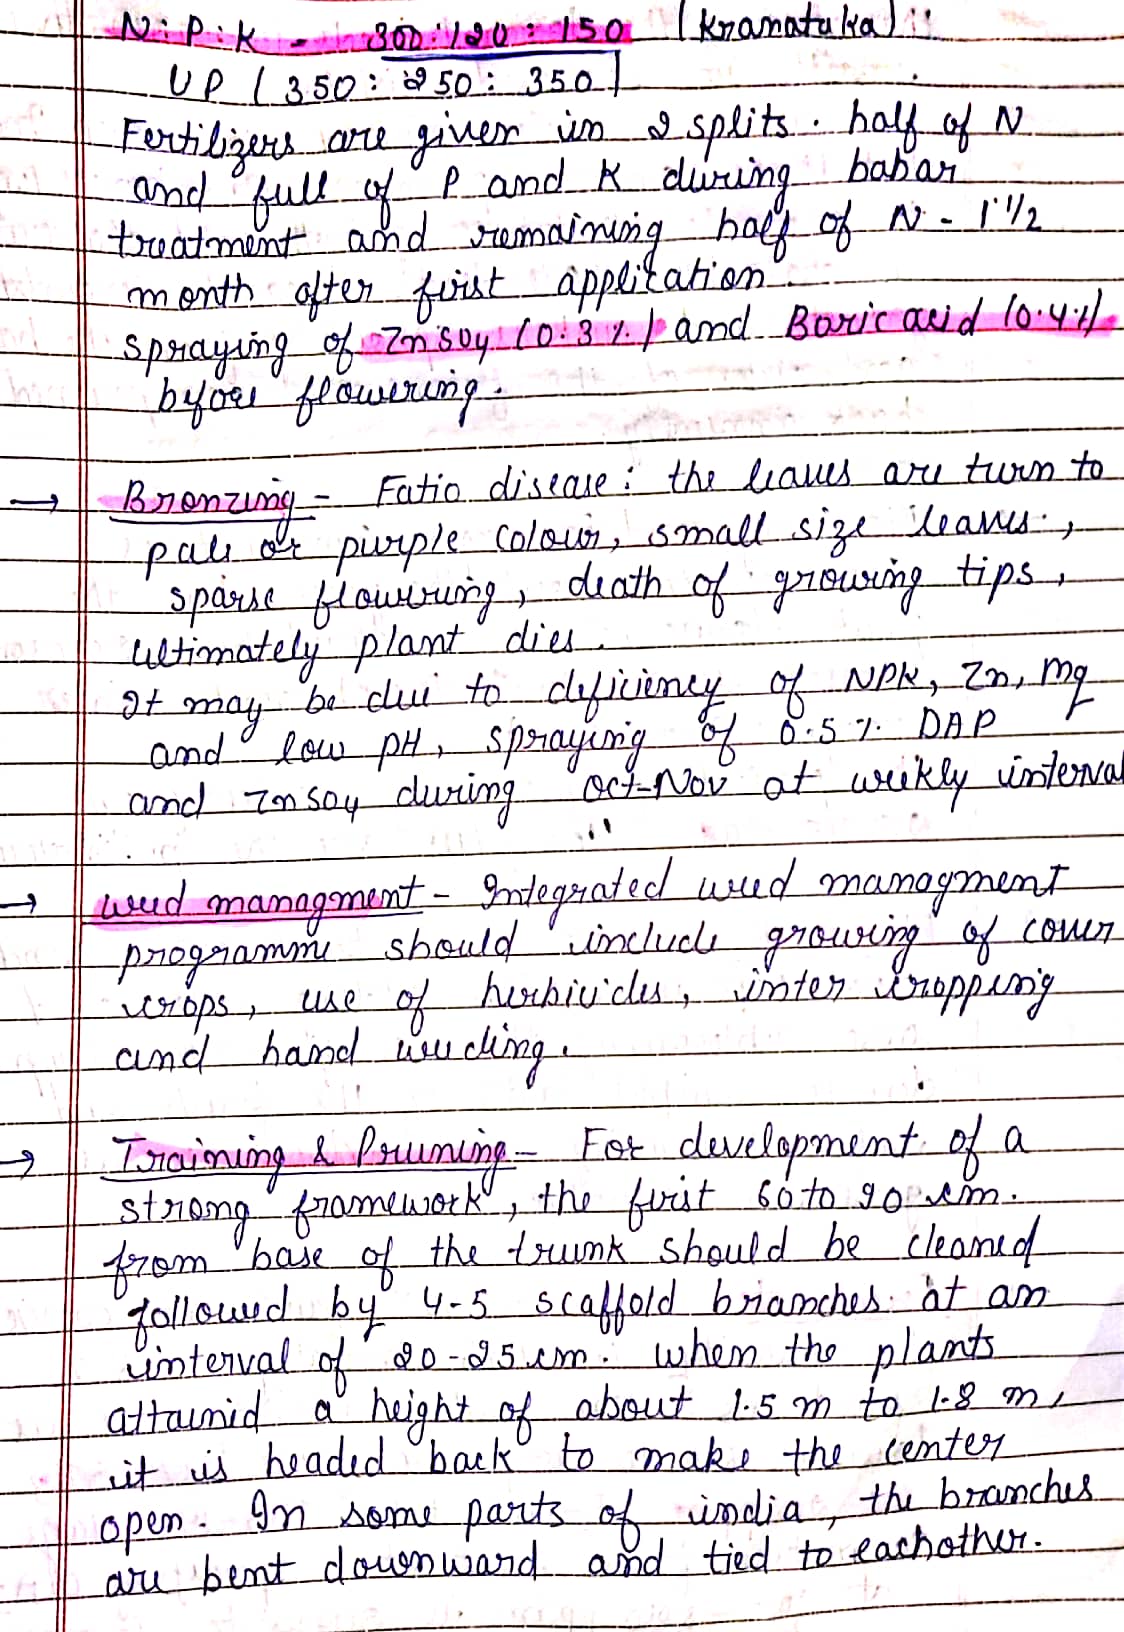 N:P:K - 300:120:150 (Kranataka)
UP (350:250:350)
Fertilizers are given in 2 splits. half of N
and full of P and K during bahar
treatment and remaining half of N - 1 1/2
month after first application.
spraying of ZnSO4 (0.3%) and Boric acid (0.4%)
before flowering.
→ Bronzing - Fatio disease: the leaves are turn to
pale or purple colour, small size leaves,
sparse flowering, death of growing tips,
ultimately plant dies.
It may be due to deficiency of NPK, Zn, Mg
and low pH, spraying of 0.5% DAP
and ZnSO4 during Oct-Nov at weekly interval
→ weed managment - Integrated weed managment
programme should include growing of cover
crops, use of herbicides, inter cropping
and hand weeding.
→ Training & Pruning - For development of a
strong framework, the first 60 to 90 cm.
from base of the trunk should be cleaned
followed by 4-5 scaffold branches at an
interval of 20-25 cm. when the plants
attainid a height of about 1.5 m to 1.8 m,
it is headed back to make the center
open. In some parts of india, the branches
are bent downward and tied to eachother.